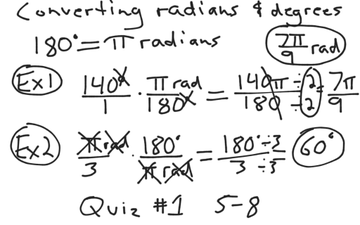 Converting radians & degrees
180° = π radians
7π/9 rad
Ex1 140°/1 · π rad/180° = 140π/180 ÷2/÷2 = 7π/9
Ex2 π rad/3 · 180°/π rad = 180°÷3/3÷3 = 60°
Quiz #1 5-8